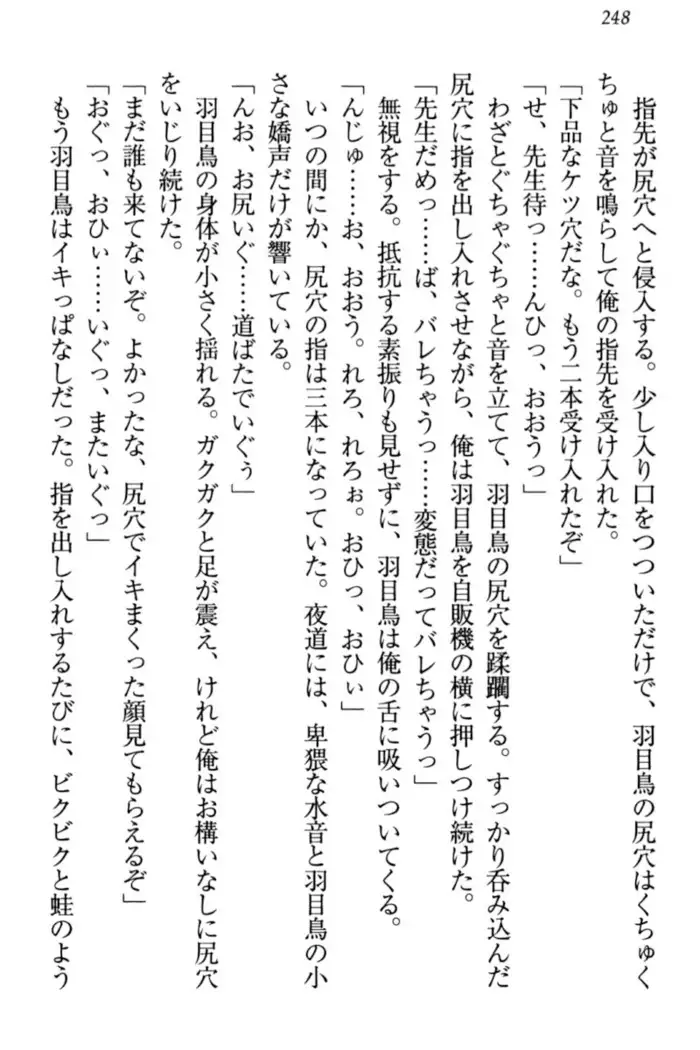 248
指先が尻穴へと侵入する。少し入り口をつついただけで、羽目鳥の尻穴はくちゅく
ちゅと音を鳴らして俺の指先を受け入れた。
「下品なケツ穴だな。もう二本受け入れたぞ」
「せ、先生待っ……んひっ、おおうっ」
わざとぐちゃぐちゃと音を立てて、羽目鳥の尻穴を蹂躙する。すっかり呑み込んだ
尻穴に指を出し入れさせながら、俺は羽目鳥を自販機の横に押しつけ続けた。
「先生だめっ……ば、バレちゃうっ……変態だってバレちゃうっ」
無視をする。抵抗する素振りも見せずに、羽目鳥は俺の舌に吸いついてくる。
「んじゅ……お、おおう。れろ、れろぉ。おひっ、おひぃ」
いつの間にか、尻穴の指は三本になっていた。夜道には、卑猥な水音と羽目鳥の小
さな嬌声だけが響いている。
「んお、お尻いぐ……道ばたでいぐぅ」
羽目鳥の身体が小さく揺れる。ガクガクと足が震え、けれど俺はお構いなしに尻穴
をいじり続けた。
「まだ誰も来てないぞ。よかったな、尻穴でイキまくった顔見てもらえるぞ」
「おぐっ、おひぃ……いぐっ、またいぐっ」
もう羽目鳥はイキっぱなしだった。指を出し入れするたびに、ビクビクと蛙のよう